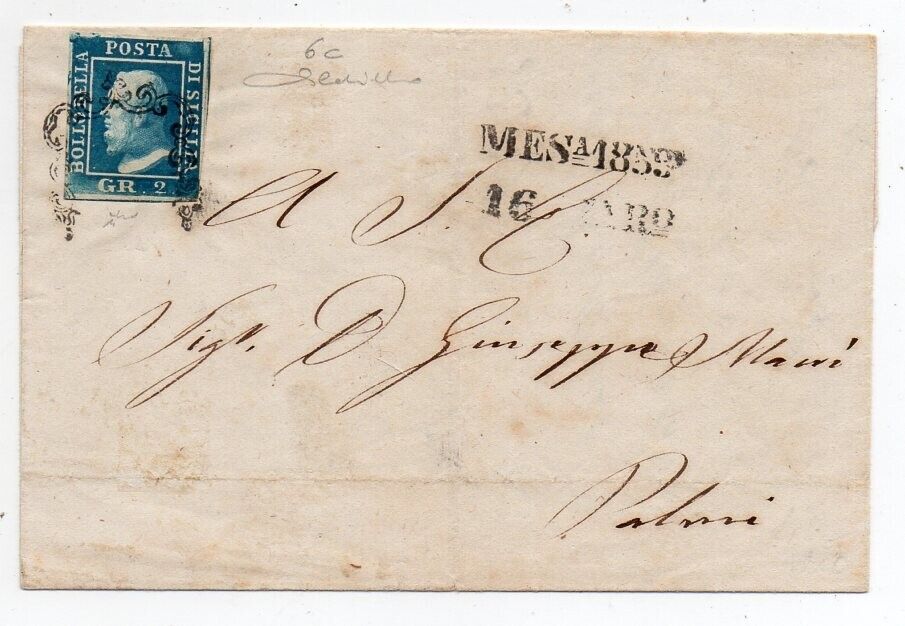 BOLLO DELLA
POSTA
DI SICILIA
GR. 2
6c
MESᴬ 1859
16
A S. C.
Sigr. D Giuseppe Mauri
Palmi